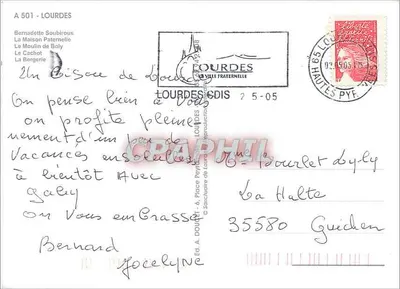 A 501 - LOURDES
Bernadette Soubirous
La Maison Paternelle
Le Moulin de Boly
Le Cachot
La Bergerie
LOURDES
LA VILLE FRATERNELLE
LOURDES CDIS
2 5-05
65 LOU
HAUTES PYR
Un Bisou de Lourdes
On pense bien à Vous
on profite pleine
nement d'un peu de
Vacances ensoleillées
à bientôt Avec
Gaby
on Vous embrasse
Bernard
Jocelyne
Dourlet Lyly
La Halte
35580 Guichen
CPAPHIL